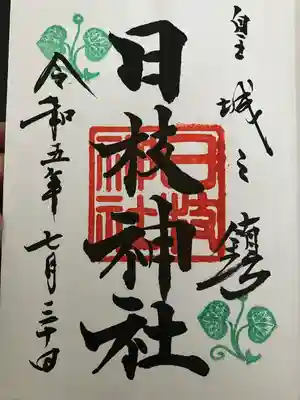 皇城之鎮
日枝神社
令和五年七月三十日